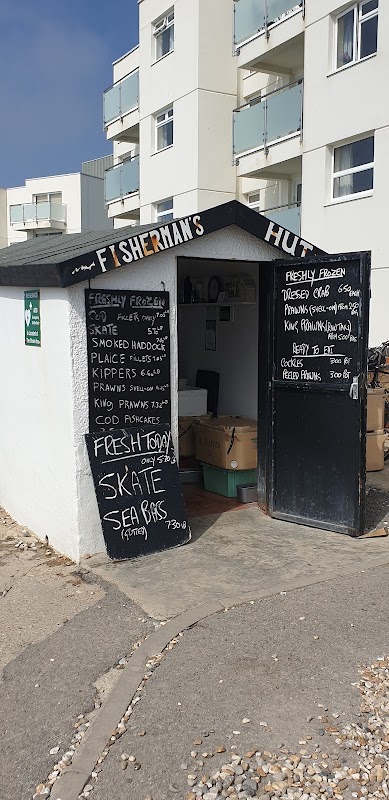 FISHERMAN'S HUT
FRESHLY FROZEN
COD FILLETS 7.05
SKATE 5.70
SMOKED HADDOCK
PLAICE FILLETS
KIPPERS 6.60
PRAWNS SHELL-ON
KING PRAWNS 7.30
COD FISHCAKES
FRESH TODAY
ONLY
SKATE
SEA BASS
(GUTTED) 7.30 lB
FRESHLY FROZEN
DRESSED CRAB 6.50 EACH
PRAWNS (SHELL-ON) FROM
KING PRAWNS (RAW/TAIL) FROM
READY TO EAT
COCKLES 3.00
PEELED PRAWNS 3.00
AED